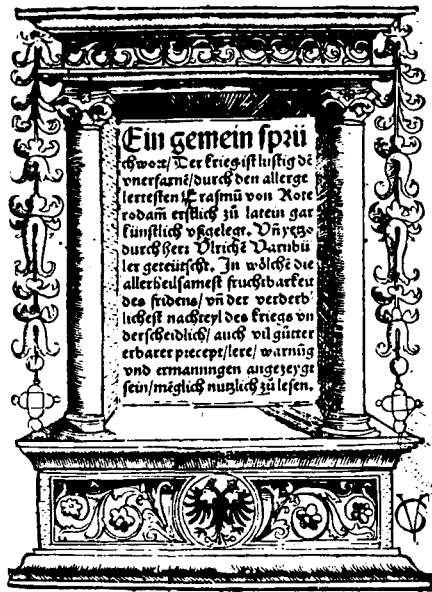 Ein gemein sprü
chwort/ Der krieg ist lustig dē
vnerfarnē/ durch den allerge
lertesten Erasmū von Rote
rodam̄ erstlich zů latein gar
künstlich vßgelegt. Vn̄ yetzo
durch herr Vlrichē Varnbü
ler geteütscht. In wölchē die
allerheilsamest fruchtbarkeit
des fridens/ vn̄ der verderb-
lichest nachteyl des kriegs vn
derscheidlich/ auch vil gůtter
erbarer precept/ lere/ warnūg
vnd ermannngen angezeygt
sein/ mēglich nutzlich zů lesen.